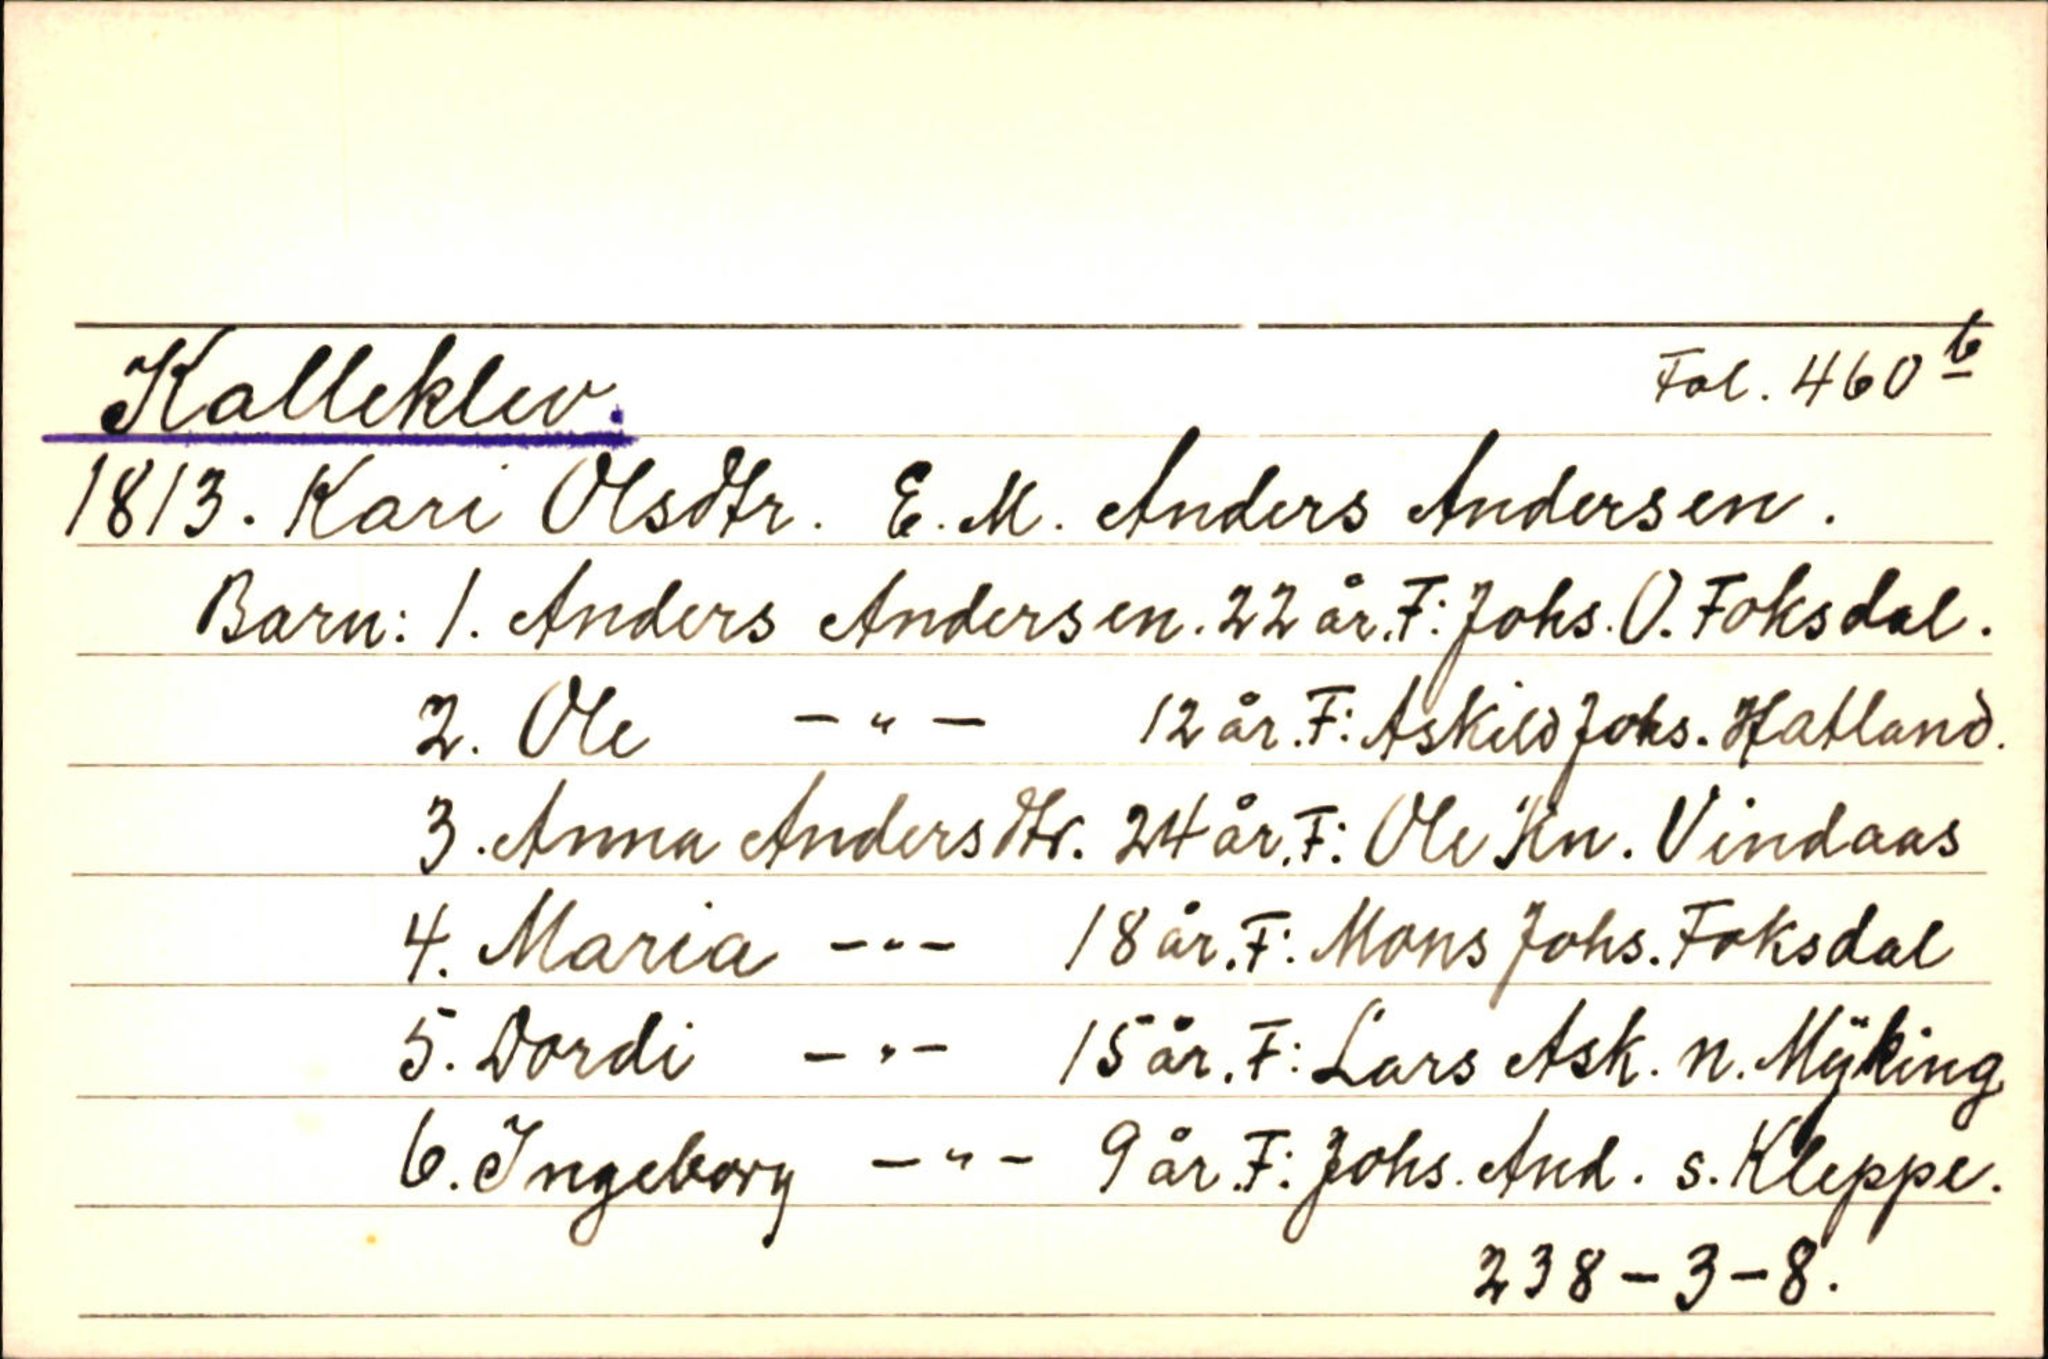 Kalleklev. Fol. 460 b
1813. Kari Olsdtr. E. M. Anders Andersen.
Barn: 1. Anders Andersen. 22 år. F: Johs. O. Foksdal.
2. Ole -"- 12 år. F: Askild Johs. Hatland.
3. Anna Andersdtr. 24 år. F: Ole Kn. Vindaas
4. Maria -"- 18 år. F: Mons Johs. Foksdal
5. Dordi -"- 15 år. F: Lars Ask. n. Mÿking
6. Ingeborg -"- 9 år. F: Johs. And. s. Kleppe.
238-3-8.